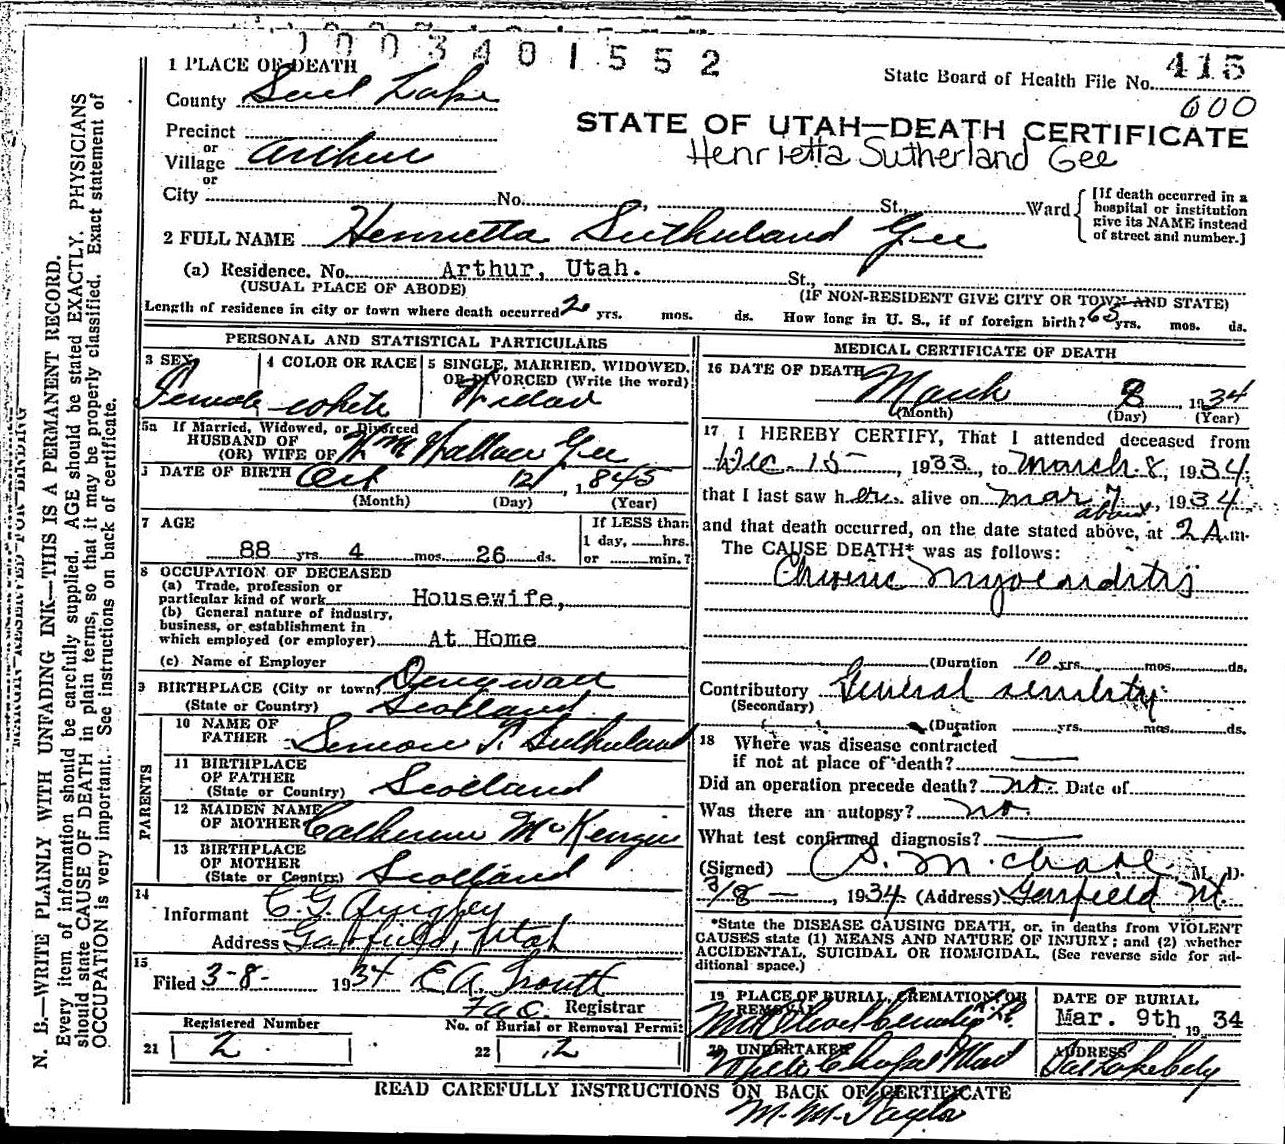 1003401552
1 PLACE OF DEATH
State Board of Health File No. 415
County Salt Lake
600
STATE OF UTAH—DEATH CERTIFICATE
Henrietta Sutherland Gee
Precinct
or
Village Arthur
or
City No. , St. Ward
[If death occurred in a
hospital or institution
give its NAME instead
of street and number.]
2 FULL NAME Henrietta Sutherland Gee
(a) Residence. No. Arthur, Utah. St.,
(USUAL PLACE OF ABODE) (IF NON-RESIDENT GIVE CITY OR TOWN AND STATE)
Length of residence in city or town where death occurred 2 yrs. mos. ds. How long in U. S., if of foreign birth? 65 yrs. mos. ds.
PERSONAL AND STATISTICAL PARTICULARS
3 SEX 4 COLOR OR RACE 5 SINGLE, MARRIED, WIDOWED,
OR DIVORCED (Write the word)
Female white Widow
5a If Married, Widowed, or Divorced
HUSBAND OF
(OR) WIFE OF Wm Wallace Gee
6 DATE OF BIRTH Oct 12, 1845
(Month) (Day) (Year)
7 AGE If LESS than
1 day, hrs.
88 yrs. 4 mos. 26 ds. or min.?
8 OCCUPATION OF DECEASED
(a) Trade, profession or
particular kind of work Housewife,
(b) General nature of industry,
business, or establishment in
which employed (or employer) At Home
(c) Name of Employer
9 BIRTHPLACE (City or town) Dingwall
(State or Country) Scotland
PARENTS
10 NAME OF
FATHER Simon T. Sutherland
11 BIRTHPLACE
OF FATHER
(State or Country) Scotland
12 MAIDEN NAME
OF MOTHER Catherine McKenzie
13 BIRTHPLACE
OF MOTHER
(State or Country) Scotland
14
Informant C. G.
Address Garfield, Utah
15
Filed 3-8- 1934 E. A. Trouth
Registrar
Registered Number No. of Burial or Removal Permit
21 2 22 2
MEDICAL CERTIFICATE OF DEATH
16 DATE OF DEATH
March 8, 1934
(Month) (Day) (Year)
17 I HEREBY CERTIFY, That I attended deceased from
Dec. 15, 1933, to March 8, 1934,
that I last saw her alive on Mar 7, 1934,
about
and that death occurred, on the date stated above, at 2 A.m.
The CAUSE DEATH* was as follows:
Chronic Myocarditis
(Duration 10 yrs. mos. ds.
Contributory General senility
(Secondary)
(Duration yrs. mos. ds.
18 Where was disease contracted
if not at place of death?
Did an operation precede death? no. Date of
Was there an autopsy? no.
What test confirmed diagnosis?
(Signed) M. D.
3/8 — , 1934. (Address) Garfield
*State the DISEASE CAUSING DEATH, or, in deaths from VIOLENT
CAUSES state (1) MEANS AND NATURE OF INJURY; and (2) whether
ACCIDENTAL, SUICIDAL OR HOMICIDAL. (See reverse side for ad-
ditional space.)
19 PLACE OF BURIAL, CREMATION OR
REMOVAL
DATE OF BURIAL
Mar. 9th, 1934
20 UNDERTAKER
White Chapel
ADDRESS
Salt Lake City
READ CAREFULLY INSTRUCTIONS ON BACK OF CERTIFICATE
M. M. Taylor
MARGIN RESERVED FOR BINDING
N. B.—WRITE PLAINLY WITH UNFADING INK—THIS IS A PERMANENT RECORD.
Every item of information should be carefully supplied. AGE should be stated EXACTLY. PHYSICIANS
should state CAUSE OF DEATH in plain terms, so that it may be properly classified. Exact statement of
OCCUPATION is very important. See instructions on back of certificate.